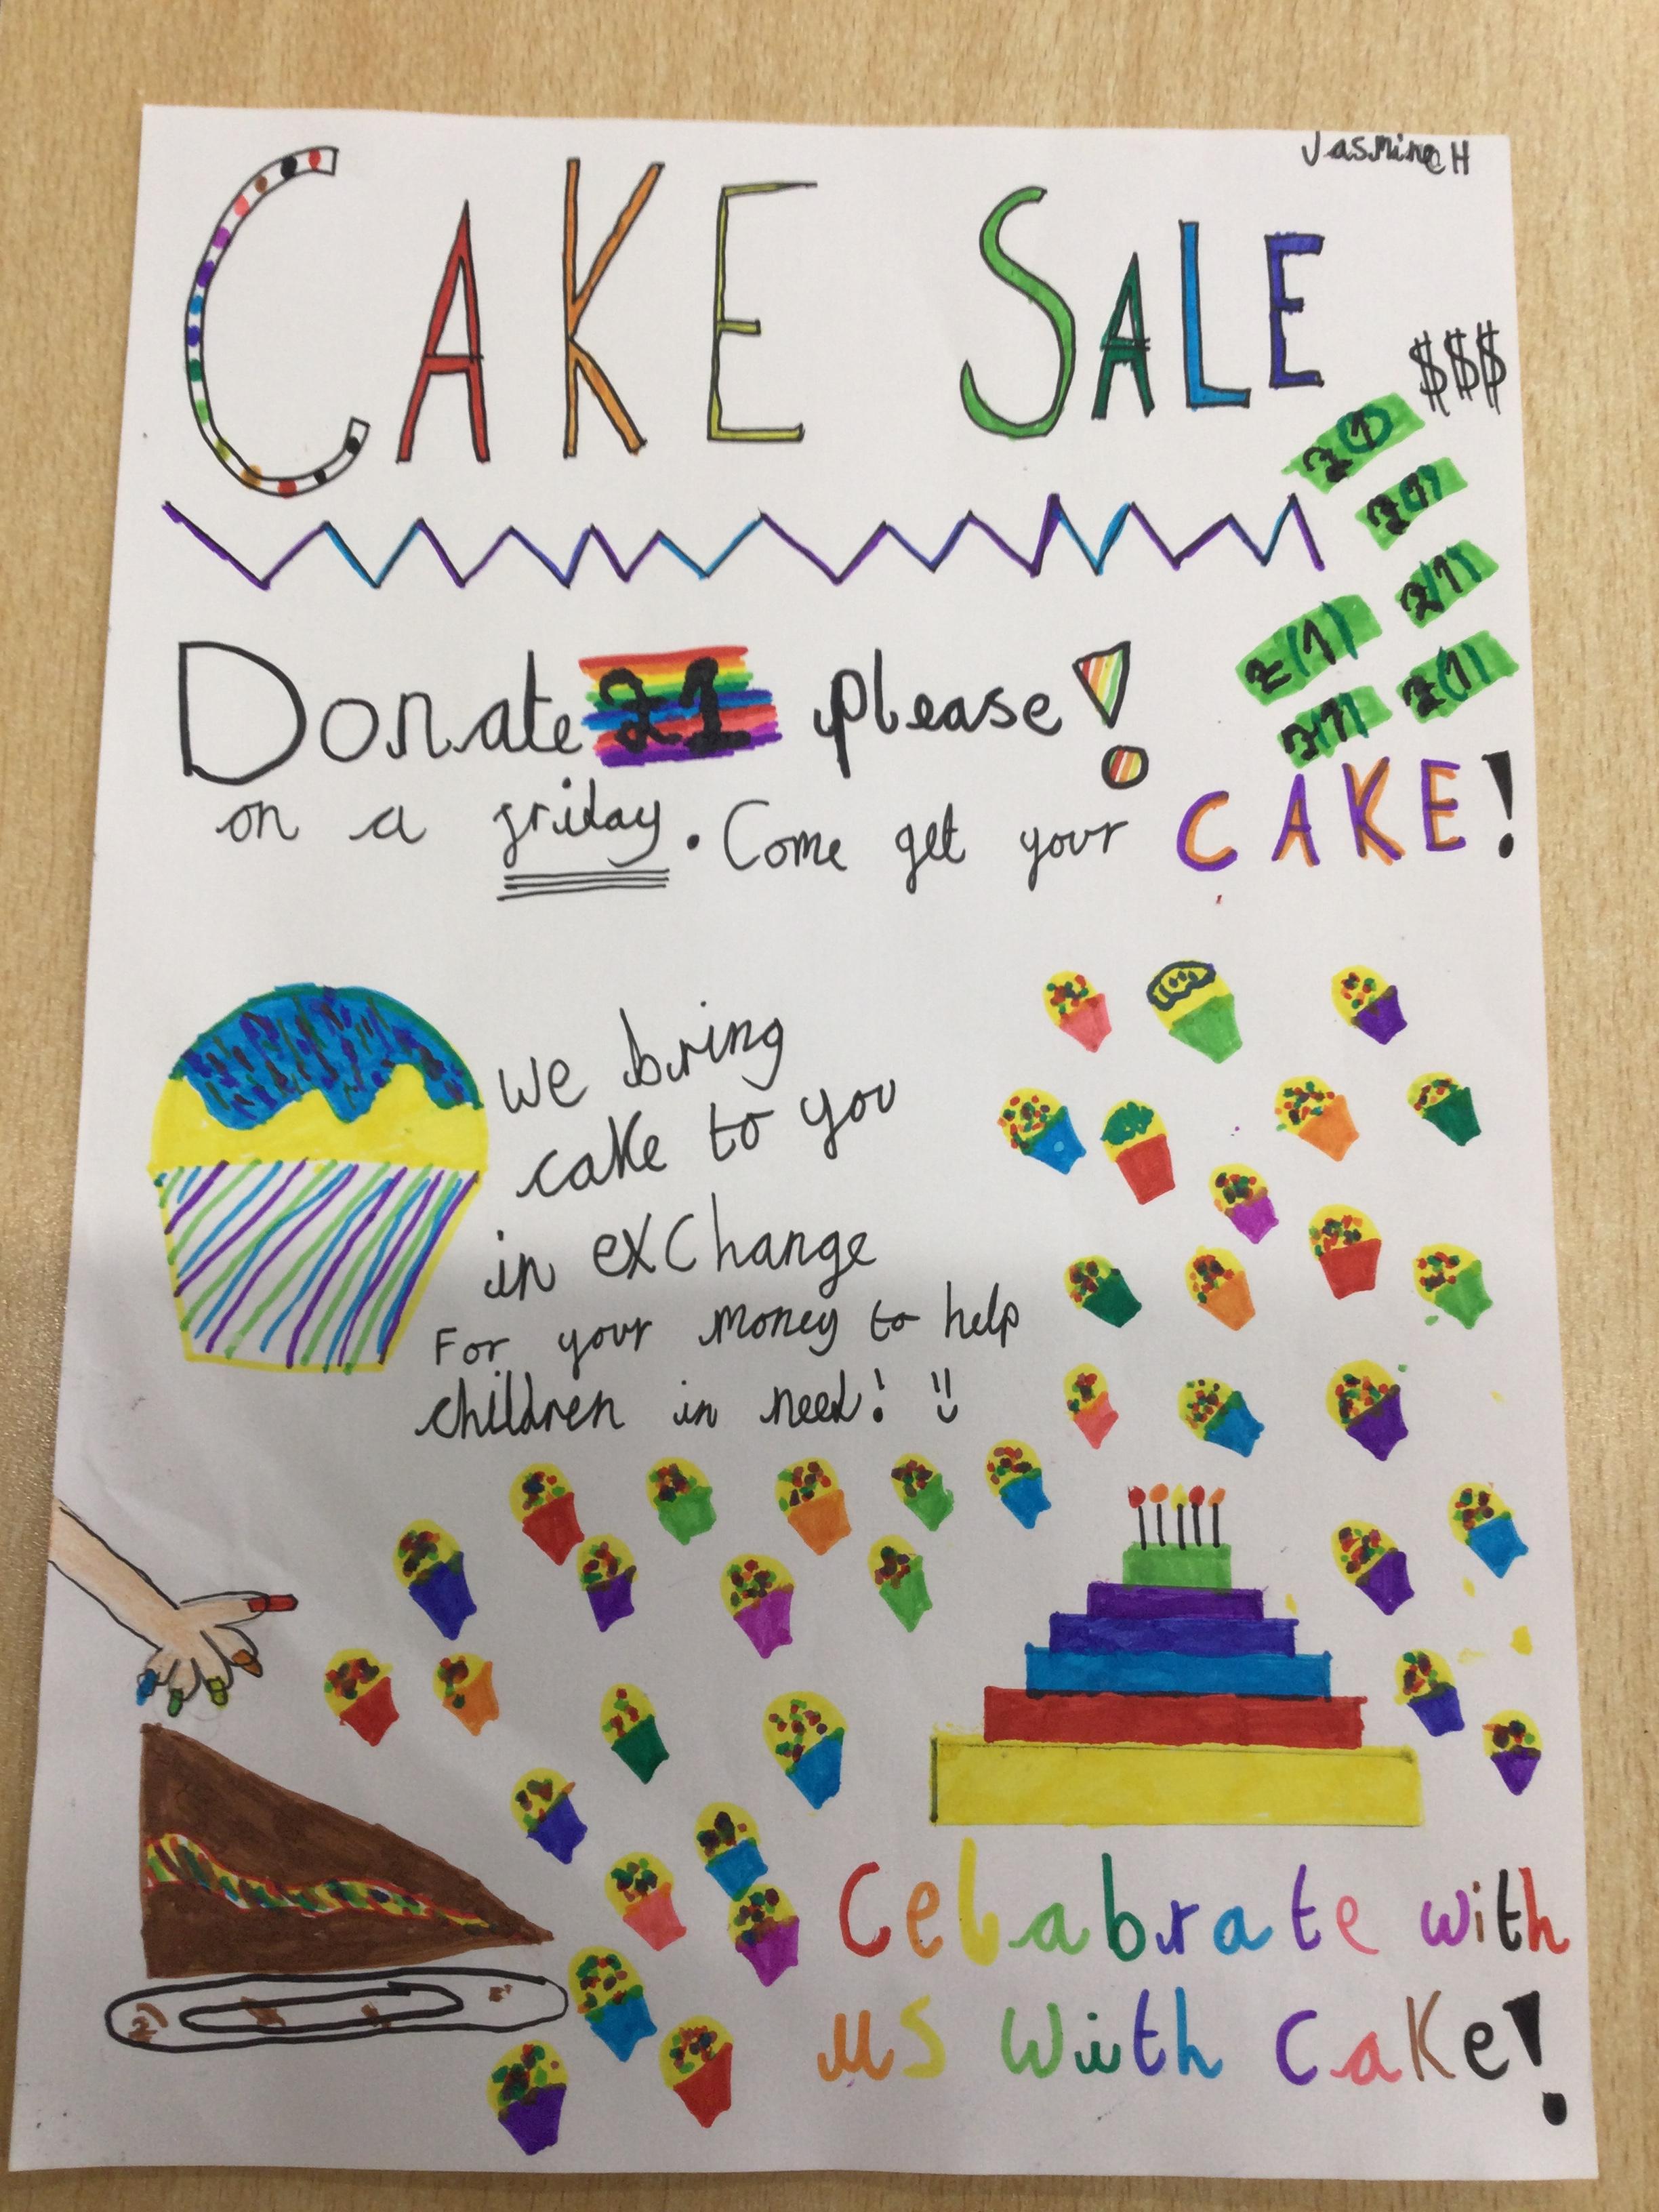 Jasmine H
CAKE SALE
$$$
Donate £1 please!
£1
£1
£1
£1
£1
£1
on a friday. Come get your CAKE!
we bring
cake to you
in exchange
For your money to help
children in need!
Celabrate with
us with cake!